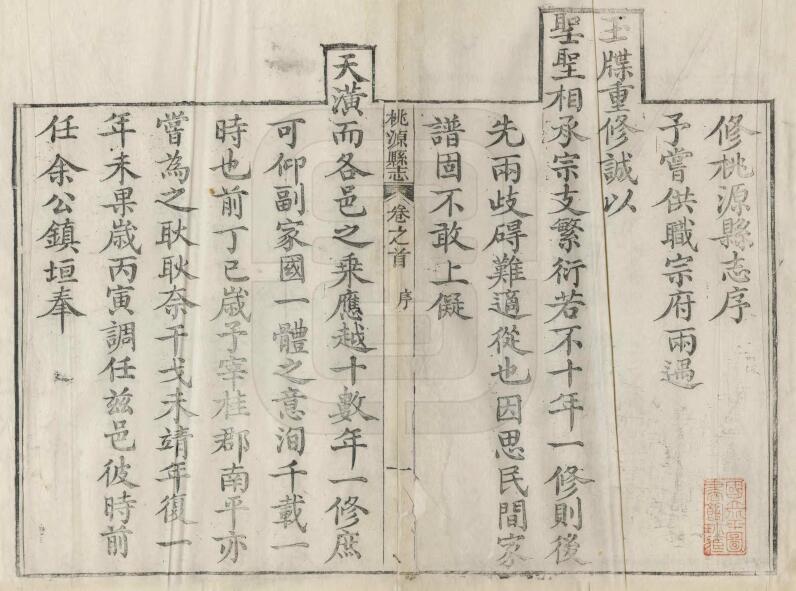 修桃源縣志序
予嘗供職宗府兩遇
玉牒重修誠以
聖聖相承宗支繁衍若不十年一修則後
先兩歧碍難適從也因思民間家
譜固不敢上儗
桃源縣志 卷之首 序 一
天潢而各邑之乗應越十數年一修庶
可仰副家國一體之意洵千載一
時也前丁巳歲予宰桂郡南平亦
嘗為之耿耿奈干戈未靖年復一
年未果歲丙寅調任兹邑彼時前
任余公鎮垣奉